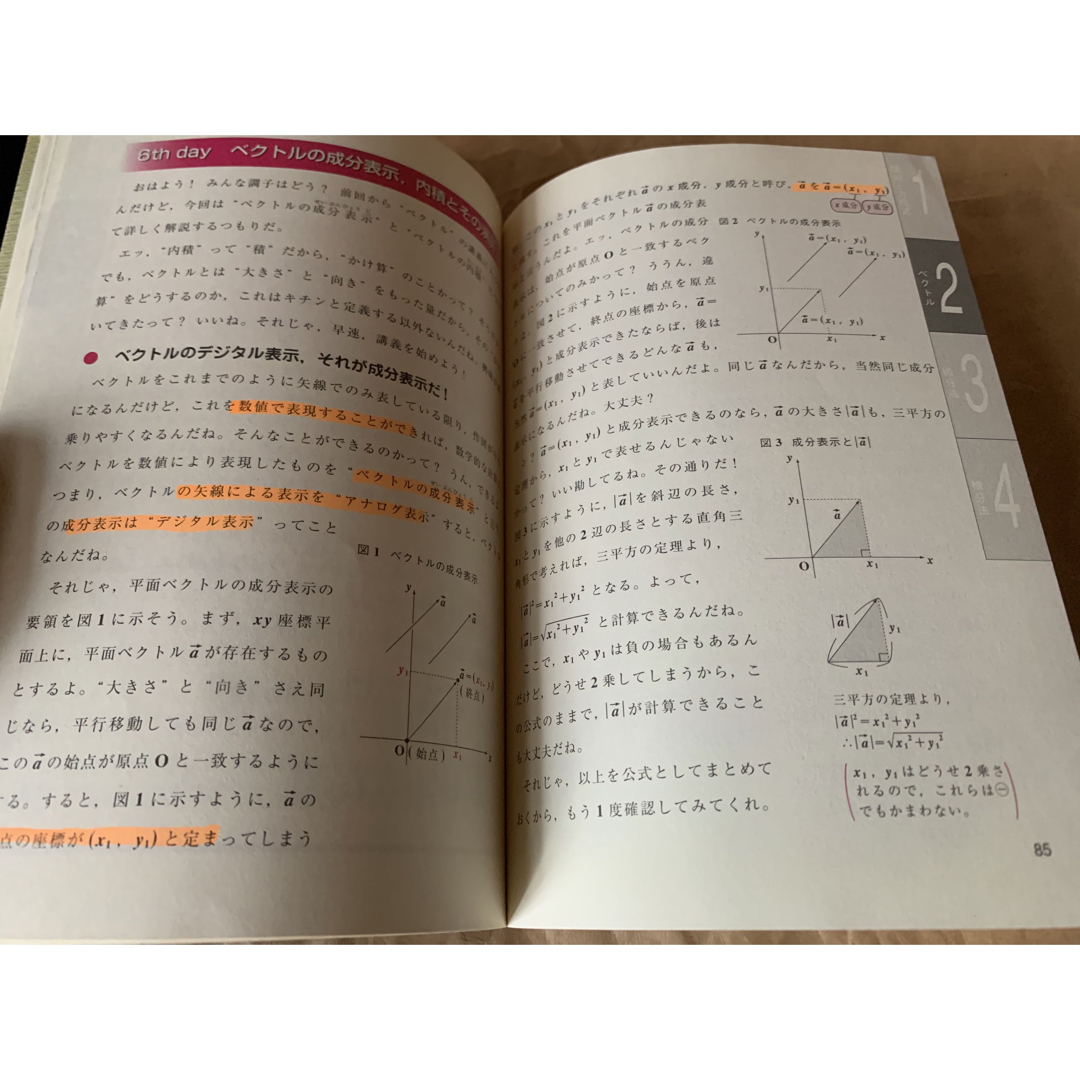 6th day ベクトルの成分表示，内積とその
おはよう！ みんな調子はどう？ 前回から“ベクトル”の講義
んだけど，今回は“ベクトルの成分表示”と“ベクトルの内積
て詳しく解説するつもりだ。
エッ，“内積”って“積”だから，“かけ算”のことかって？
でも，ベクトルとは“大きさ”と“向き”をもった量だから，その
算”をどうするのか，これはキチンと定義する以外ないんだね。
いてきたって？ いいね。それじゃ，早速，講義を始めよう！
● ベクトルのデジタル表示，それが成分表示だ！
ベクトルをこれまでのように矢線でのみ表している限り，作図が
になるんだけど，これを数値で表現することができれば，数学的な
乗りやすくなるんだね。そんなことができるのかって？ うん，できる
ベクトルを数値により表現したものを“ベクトルの成分表示”と
つまり，ベクトルの矢線による表示を“アナログ表示”すると，ベクト
の成分表示は“デジタル表示”ってこと
なんだね。
それじゃ，平面ベクトルの成分表示の
要領を図1に示そう。まず，xy座標平
面上に，平面ベクトルa⃗が存在するもの
とするよ。“大きさ”と“向き”さえ同
じなら，平行移動しても同じa⃗なので，
このa⃗の始点が原点Oと一致するように
する。すると，図1に示すように，a⃗の
点の座標が(x₁，y₁)と定まってしまう
図1 ベクトルの成分表示
y
a⃗
a⃗
y₁
a⃗=(x₁，y₁)
(終点)
O(始点)
x₁
x
このx₁とy₁をそれぞれa⃗のx成分，y成分と呼び，a⃗をa⃗=(x₁，y₁)
x成分 y成分
これを平面ベクトルa⃗の成分表
うんだよ。エッ，ベクトルの成分
は，始点が原点Oと一致するベク
についてのみかって？ ううん，違
よ。図2に示すように，始点を原点
Oに一致させて，終点の座標から，a⃗=
(x₁，y₁)と成分表示できたならば，後は
a⃗を平行移動させてできるどんなa⃗も，
当然a⃗=(x₁，y₁)と表していいんだよ。同じa⃗なんだから，当然同じ成分
表示になるんだね。大丈夫？
図2 ベクトルの成分表示
y
a⃗=(x₁，y₁)
a⃗=(x₁，y₁)
y₁
a⃗=(x₁，y₁)
O
x₁
x
？ a⃗=(x₁，y₁)と成分表示できるのなら，a⃗の大きさ|a⃗|も，三平方の
定理から，x₁とy₁で表せるんじゃない
かって？ いい勘してるね。その通りだ！
図3に示すように，|a⃗|を斜辺の長さ，
x₁とy₁を他の2辺の長さとする直角三
角形で考えれば，三平方の定理より，
|a⃗|²=x₁²+y₁²となる。よって，
|a⃗|=√x₁²+y₁² と計算できるんだね。
ここで，x₁やy₁は負の場合もあるん
だけど，どうせ2乗してしまうから，こ
の公式のままで，|a⃗|が計算できること
も大丈夫だね。
それじゃ，以上を公式としてまとめて
おくから，もう1度確認してみてくれ。
図3 成分表示と|a⃗|
y
y₁
a⃗
O
x₁
x
|a⃗|
y₁
x₁
三平方の定理より，
|a⃗|²=x₁²+y₁²
∴|a⃗|=√x₁²+y₁²
(x₁，y₁はどうせ2乗さ
れるので，これらは⊖
でもかまわない。)
1
2
ベクトル
3
4
85